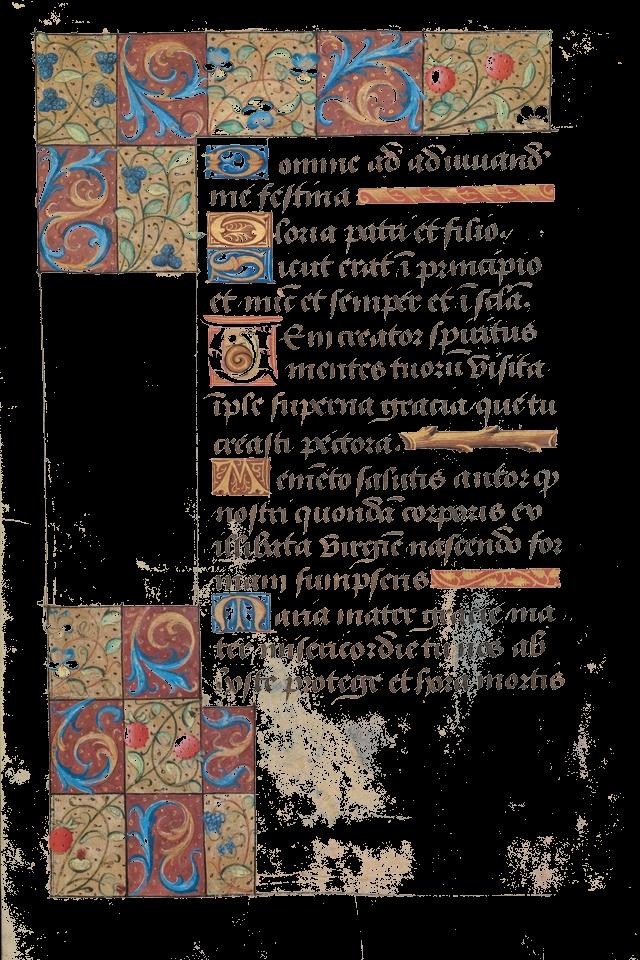 Domine ad adiuuand̾
me festina
Gloria patri et filio.
Sicut erat ī principio
et nūc et semper et ī sclā.
Veni creator spiritus
mentes tuorū visita
īple superna gracia que tu
creasti pectora.
Memēto salutis autor q
nostri quondā corporis ex
illibata virgīe nascendo for
mam sumpseris
Maria mater gracie ma
ter misericordie tu nos ab
hoste protege et hora mortis